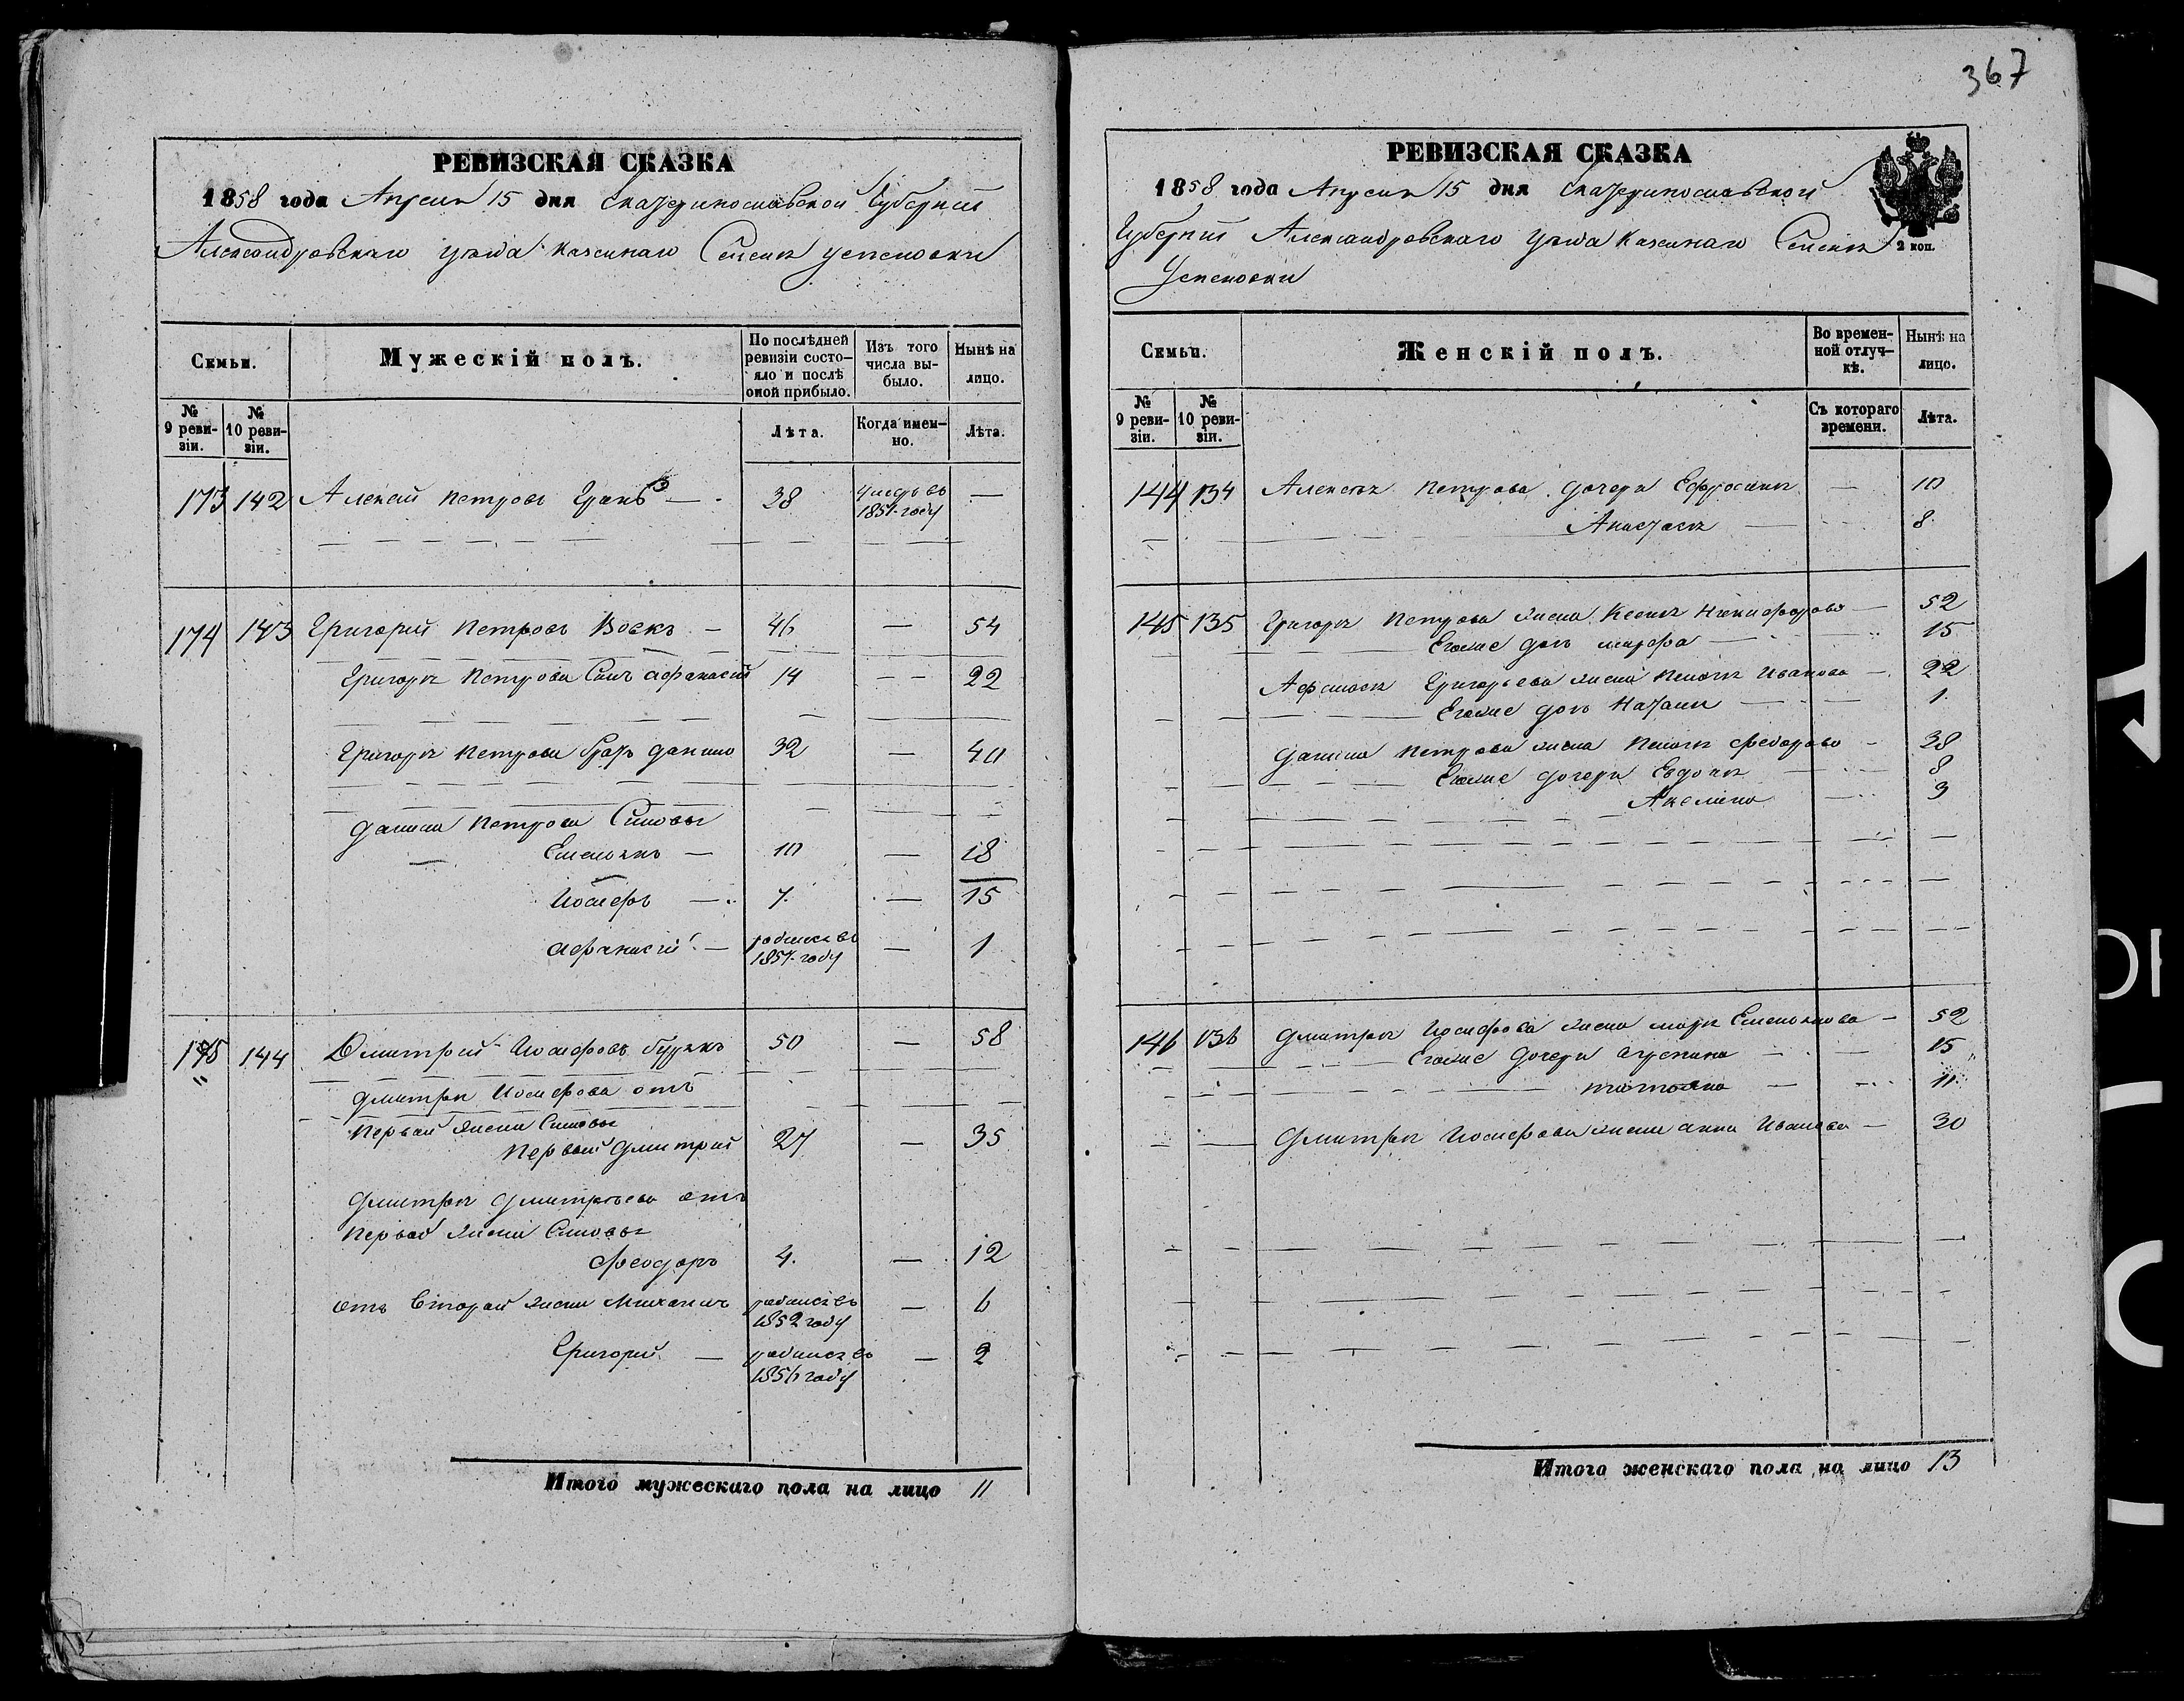 367
РЕВИЗСКАЯ СКАЗКА
1858 года Апреля 15 дня Екатеринославской Губерніи
Александровскаго уезда казеннаго Селенія Успеновки
Семьи.
Мужескій полъ.
По послѣдней ревизіи состо-
яло и послѣ оной прибыло.
Изъ того числа вы-
было.
Нынѣ на лицо.
№ 9 реви-
зіи.
№ 10 реви-
зіи.
Лѣта.
Когда имен-
но.
Лѣта.
173 142 Алексей Петровъ 38 умеръ въ — 
1857 году
174 143 Григорий Петровъ Вовкъ — 46 — 54
Григорія Петрова Сынъ Афанасий 14 — — 22
Григорія Петрова братъ Данило 32 — 40
Данила Петрова Сыновья
Емельянъ — 10 — 18
Иосифъ — 7. — 15
Афанасій — родился въ — 1
1857 году
175 144 Дмитрий Иосифовъ 50 — 58
Дмитрія Иосифова отъ
Первой жены Сыновья
Первый Дмитрий 27 — 35
Дмитрія Дмитріева отъ
Первой жены Сыновья
Феодоръ 4. — 12
отъ второй жены Михаилъ родился въ — 6
1852 году
Григорий — родился въ — 2
1856 году
Итого мужескаго пола на лицо 11
РЕВИЗСКАЯ СКАЗКА
1858 года Апреля 15 дня Екатеринославской
2 коп.
Губерніи Александровскаго уезда казеннаго Селенія
Успеновки
Семьи.
Женскій полъ.
Во времен-
ной отлуч-
кѣ.
Нынѣ на лицо.
№ 9 реви-
зіи.
№ 10 реви-
зіи.
Съ котораго времени.
Лѣта.
144 134 Алексея Петрова дочери Ефросинія — 10
Анастасія — 8
145 135 Григорія Петрова жена Ксенія Никифорова — 52
Егоже дочь Марфа — 15
Афанасія Григорьева жена Пелагія Иванова — 22
Егоже дочь Наталія — 1.
Данила Петрова жена Пелагія Федорова — 38
Егоже дочери Евдокія — 8
Акелина — 3
146 136 Дмитрія Иосифова жена Марія Емельянова — 52
Егоже дочери Агрепина — 15
Татіана — 11
Дмитрія Иосифова жена Анна Иванова — 30
Итого женскаго пола на лицо 13